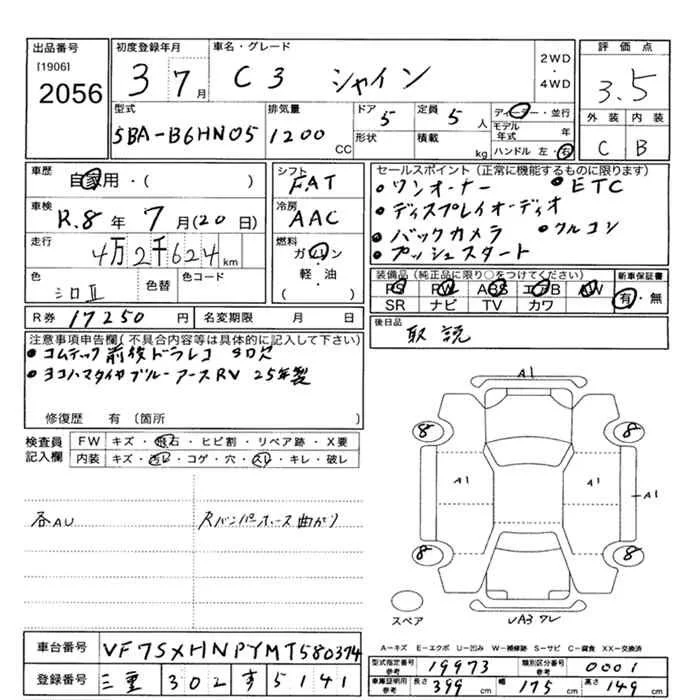 出品番号 初度登録年月 車名・グレード 2WD・4WD 評価点
[1906]
2056 3 7月 C3 シャイン 3.5
型式 排気量 ドア 定員 ディーラー・並行 外装 内装
5BA-B6HN05 1200 CC 5 5人 モデル年式 年 C B
形状 積載 kg ハンドル 左・右
車歴 自家用・( ) シフト FAT セールスポイント (正常に機能するものに限ります)
車検 R.8年 7月(20日) 冷房 AAC ・ワンオーナー ・ETC
走行 4万2千624km 燃料 ガソリン・軽・油 ( ) ・ディスプレイオーディオ
・バックカメラ ・クルコン
・プッシュスタート
色 シロⅡ 色替 色コード
装備品 (純正品に限り○をつけてください) 新車保証書
PS PW ABS エアB AW 有・無
SR ナビ TV カワ
R券 17250円 名変期限 月 日
後日品 取説
注意事項申告欄(不具合内容等は具体的に記入して下さい)
・コムテック前後ドラレコ
・ヨコハマタイヤブルーアースRV 25年製
修復歴 有 (箇所 )
検査員記入欄 FW キズ・飛石・ヒビ割・リペア跡・X要
内装 キズ・汚レ・コゲ・穴・スレ・キレ・破レ
A1
8 8
A1 A1 A1
8 8
各AU
スペア
車台番号 VF7SXHNPYMT580374
A-キズ E-エクボ U-凹み W-補修跡 S-サビ C-腐食 XX-交換済
型式指定番号 参考 19973 類別区分番号 参考 0001
登録番号 三重 302 す 5141
車庫証明用 参考 長さ 399cm 幅 175cm 高さ 149cm